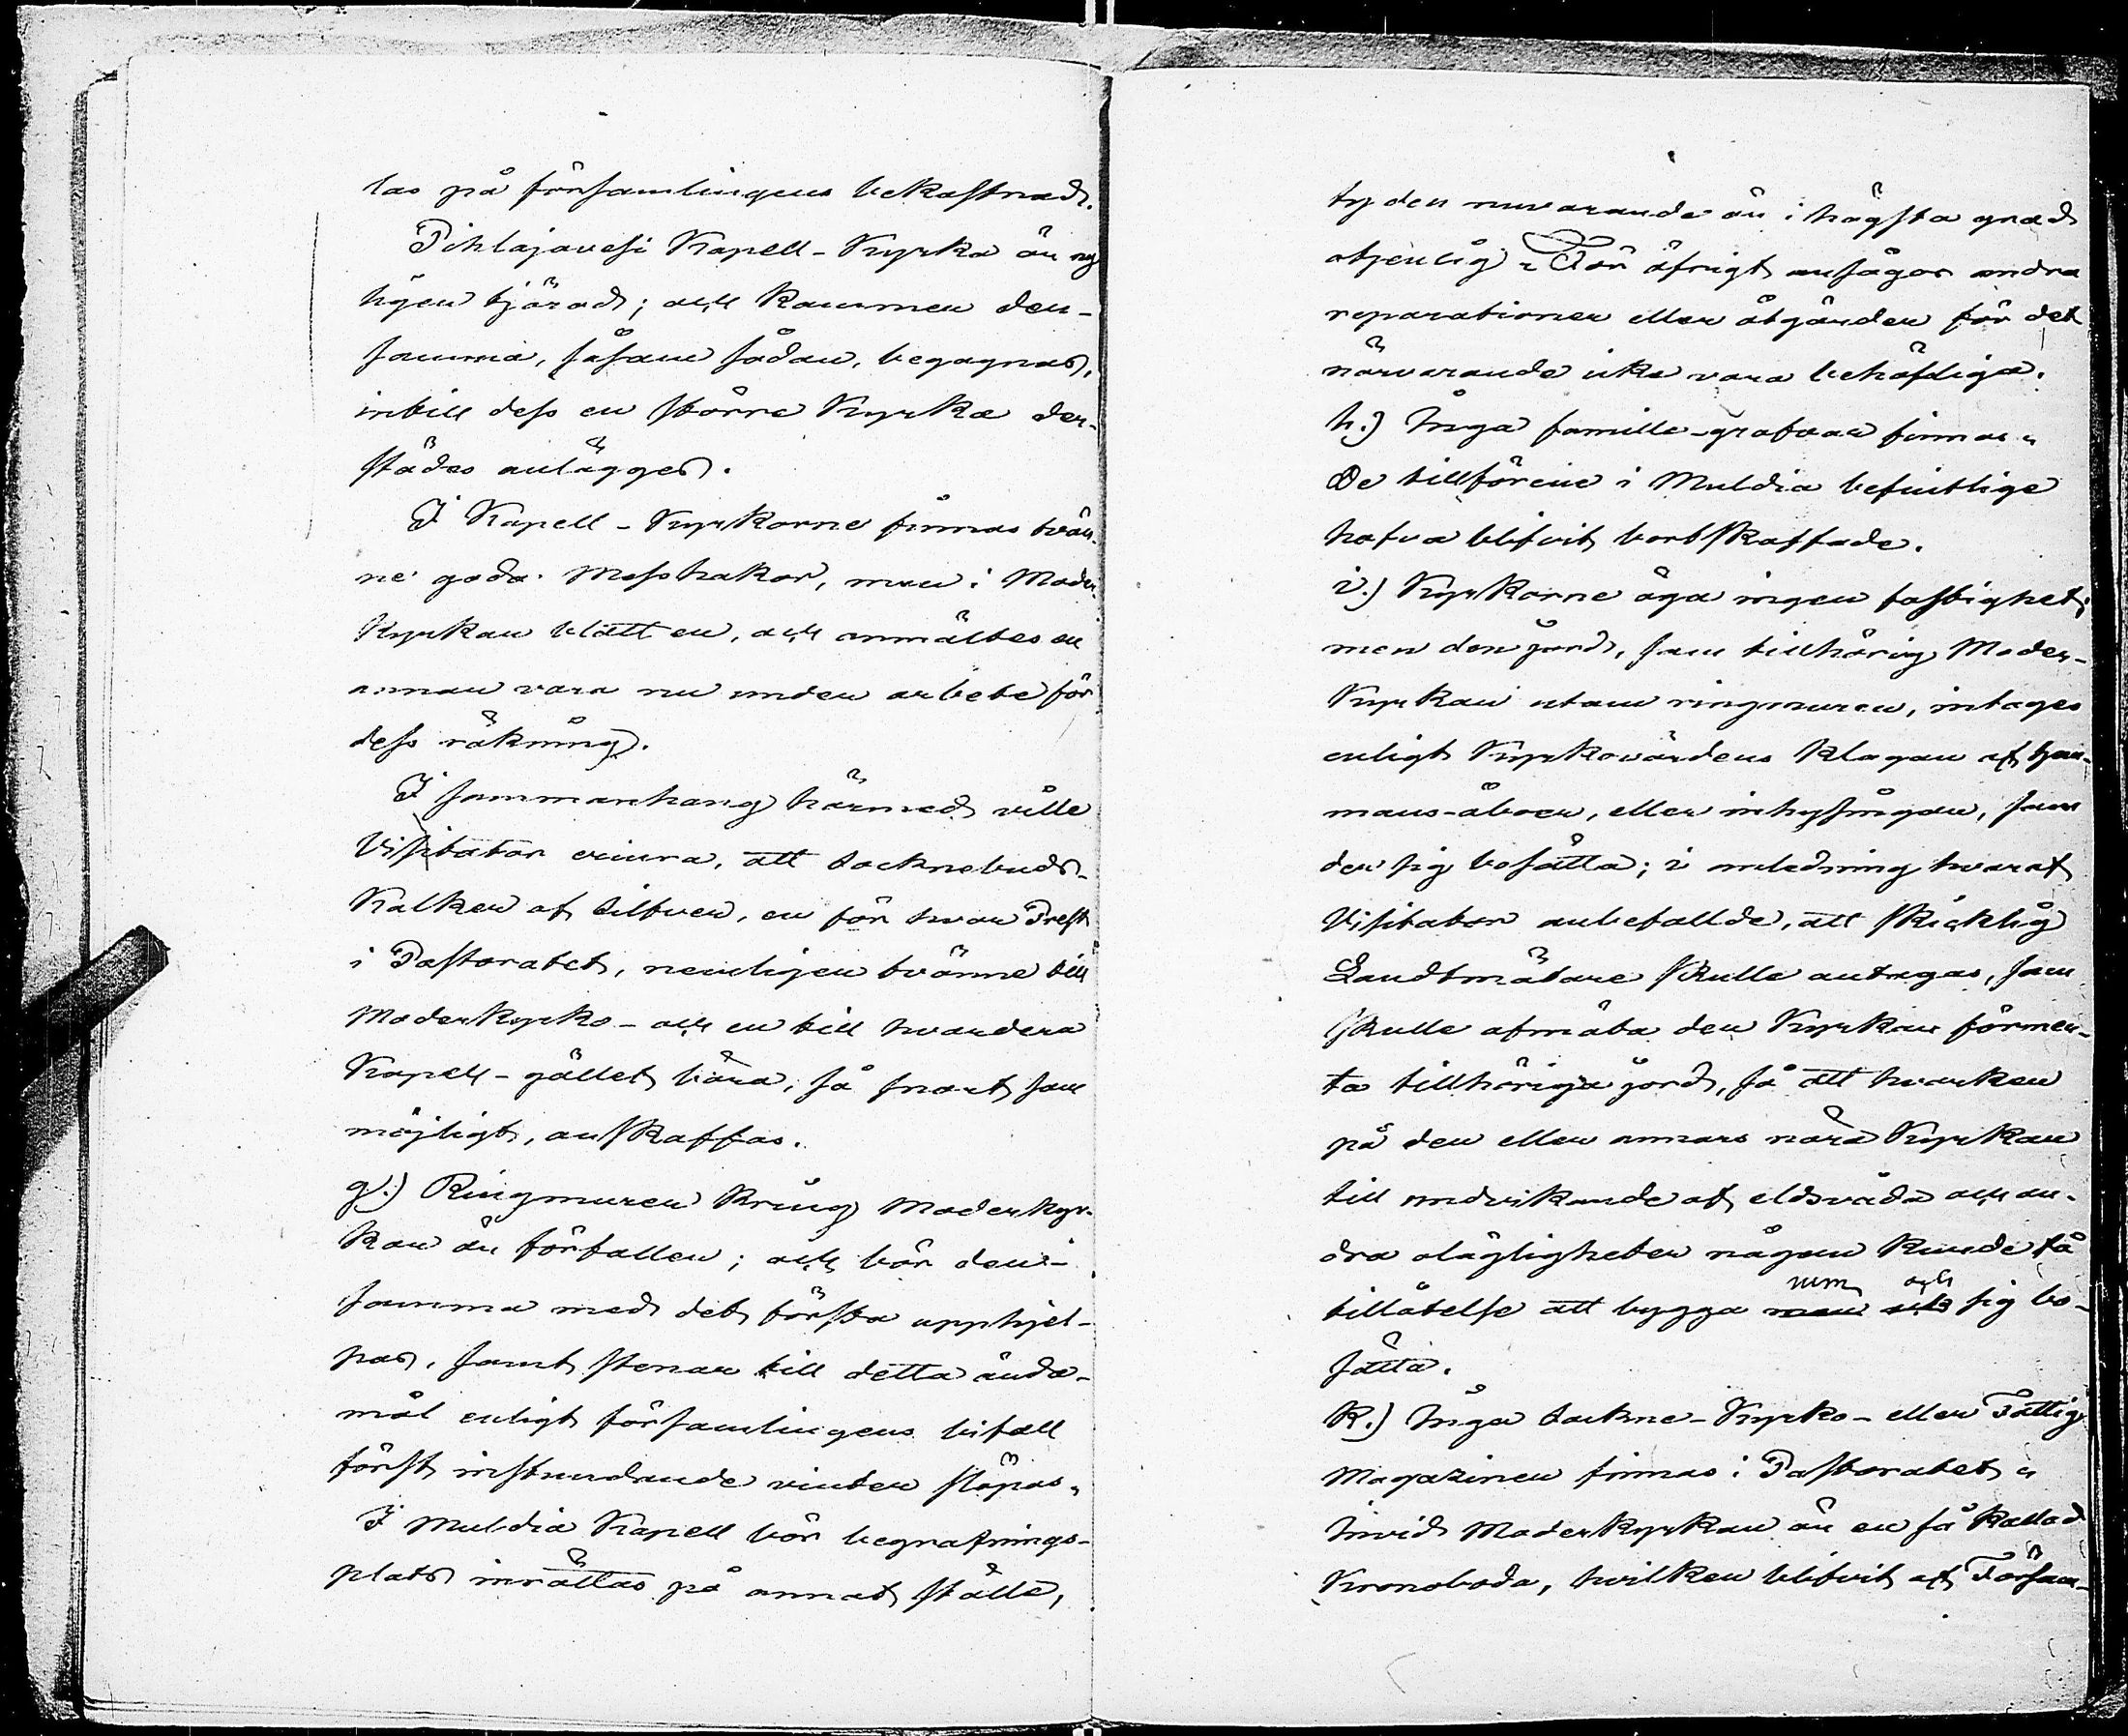 las på församlingens bekostnad.
Pihlajavesi Kapell-Kyrka är ny
ligen tjärad; och kan men den-
samma, såsom sådan, begagnas,
intill dess en större Kyrka der-
städes anlägges.
I Kapell-Kyrkorne finnas tvän-
ne goda Messhakar, men i Moder
Kyrkan blott en, och anmältes en
annan vara nu under arbete för
dess räkning.
I sammanhang härmed ville
Visitator erinra, att socknebuds-
Kalker af Silfver, en för hvar Prest
i Pastoratet, nemligen tvänne till
Moderkyrko- och en till hvardera
Kapell-gället böra, så snart som
möjligt, anskaffas.
g.) Ringmuren kring Moderkyr-
kan är förfallen; och bör den-
samma med det första upphjel-
pas, samt stenar till detta ända-
mål enligt församlingens bifall
först instundande vinter släpas.
I Muldia Kapell bör begrafnings-
plats inrättas på annat ställe,
ty den nuvarande är i högsta grad
otjenlig. För öfrigt ansågos andra
reparationer eller åtgärder för det
närvarande icke vara behöfliga.
h.) Inga famille-grafvar finnas.
De tillförene i Muldia befintlige
hafva blifvit bortskaffade.
i.) Kyrkorne äga ingen fastighet;
men den jord, som tillhörig Moder-
Kyrkan utom ringmuren, intages
enligt Kyrkovärdens klagan af
mans-åboer, eller inhysingar, som
der sig bosätta; i anledning hvaraf
Visitator anbefallde, att skicklig
Landtmätare skulle antagas, som
skulle afmäta den Kyrkan förmen-
ta tillhöriga jord, så att hvarken
på den eller annars nära Kyrkan
till undvikande af eldsvåda och an-
dra olägligheter någon kunde få
tillåtelse att bygga rum och sig bo-
sätta.
k.) Inga Sockne-Kyrko- eller Fattig
Magaziner finnas i Pastoratet.
Invid Moderkyrkan är en så kallad
Kronoboda, hvilken blifvit af Försam-